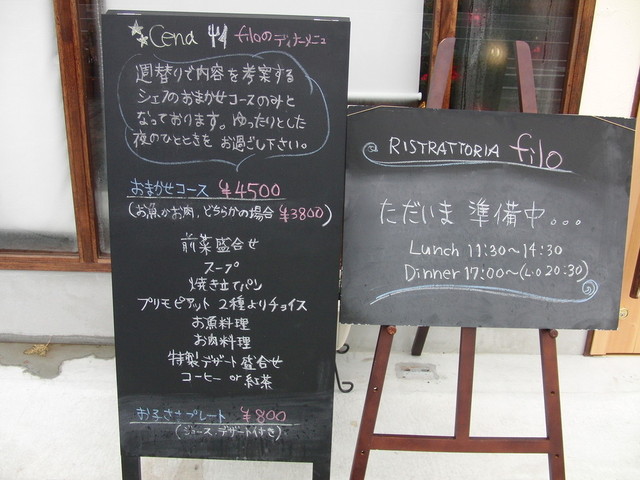 Cena filoのディナーメニュ
週替りで内容を考案する
シェフのおまかせコースのみと
なっております。ゆったりとした
夜のひとときをお過ごし下さい。
おまかせコース ¥4500
(お魚かお肉,どちらかの場合 ¥3800)
前菜盛合せ
スープ
焼き立てパン
プリモピアット 2種よりチョイス
お魚料理
お肉料理
特製デザート盛合せ
コーヒー or 紅茶
お子さまプレート ¥800
(ジュース、デザート付き)
RISTRATTORIA filo
ただいま 準備中...
Lunch 11:30~14:30
Dinner 17:00~(L.O 20:30)